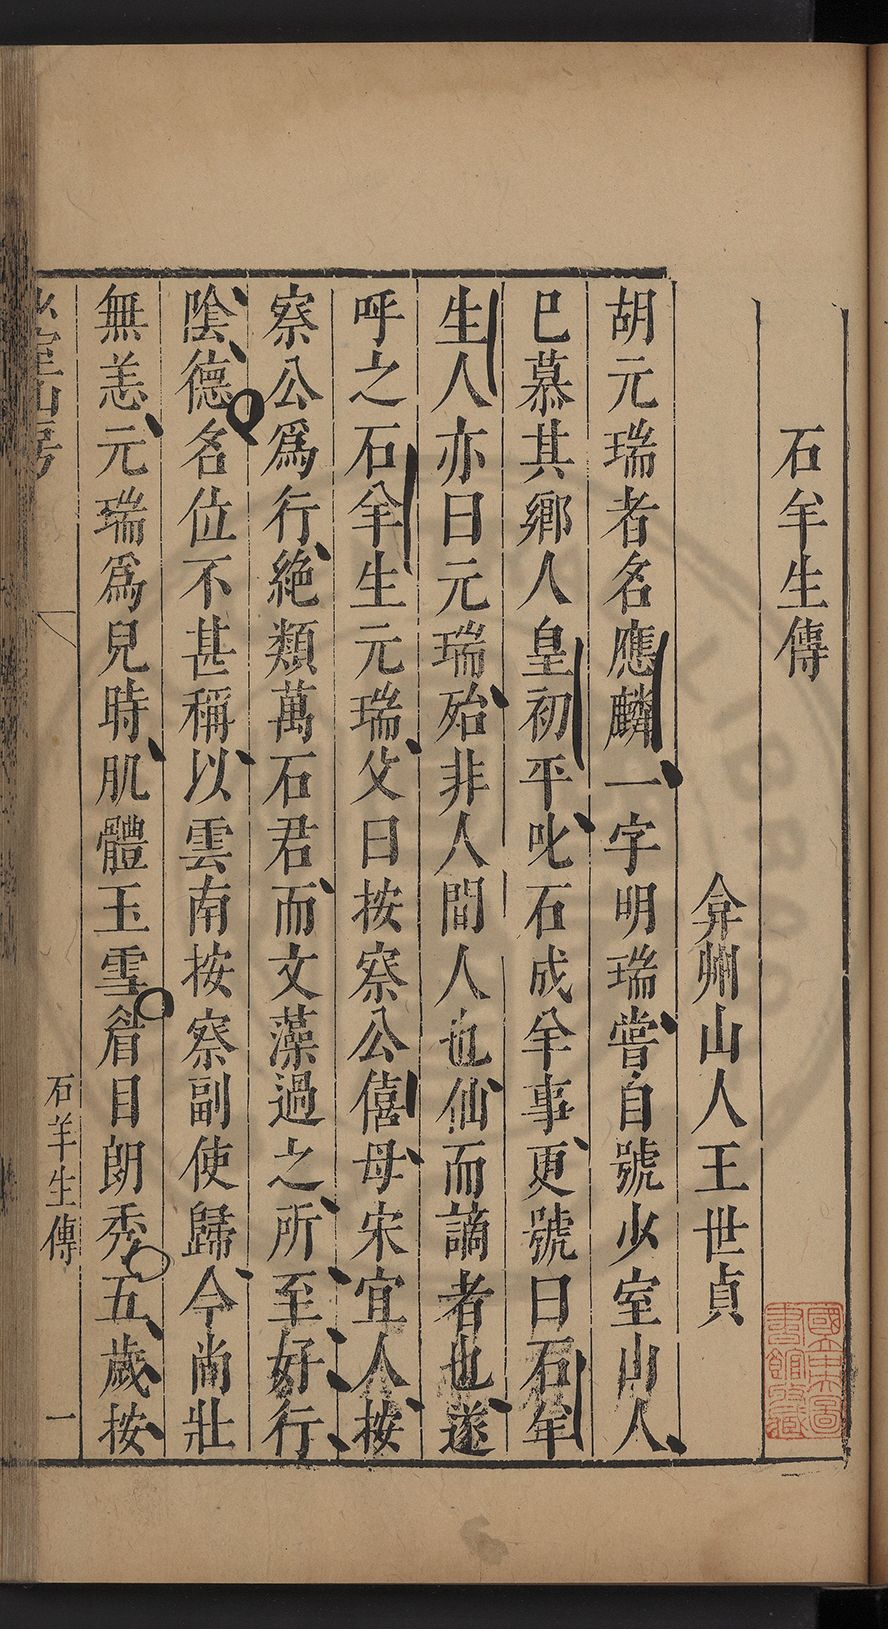 石羊生傳
弇州山人王世貞
胡元瑞者名應麟一字明瑞嘗自號少室山人
已慕其鄉人皇初平叱石成羊事更號曰石羊
生人亦曰元瑞殆非人間人也仙而謫者也遂
呼之石羊生元瑞父曰按察公僖母宋宜人按
察公爲行絶類萬石君而文藻過之所至好行
陰德名位不甚稱以雲南按察副使歸今尚壯
無恙元瑞爲兒時肌體玉雪眉目朗秀五歲按
少室山房
石羊生傳
一
國立東圖
書館收藏